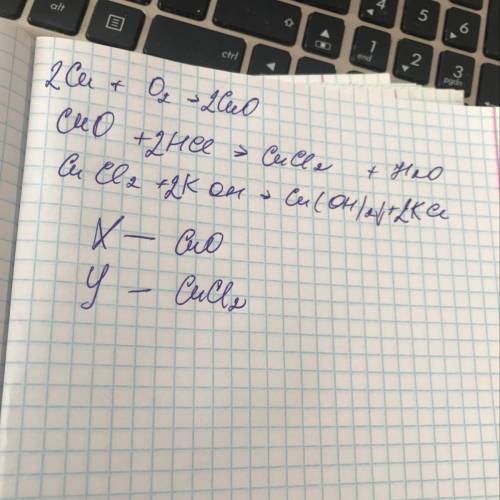 alt
ctrl
4
5
6
1
end
2
3
pgdn
2Cu + O₂ → 2CuO
CuO + 2HCl → CuCl₂ + H₂O
CuCl₂ + 2KOH → Cu(OH)₂↓ + 2KCl
X — CuO
Y — CuCl₂